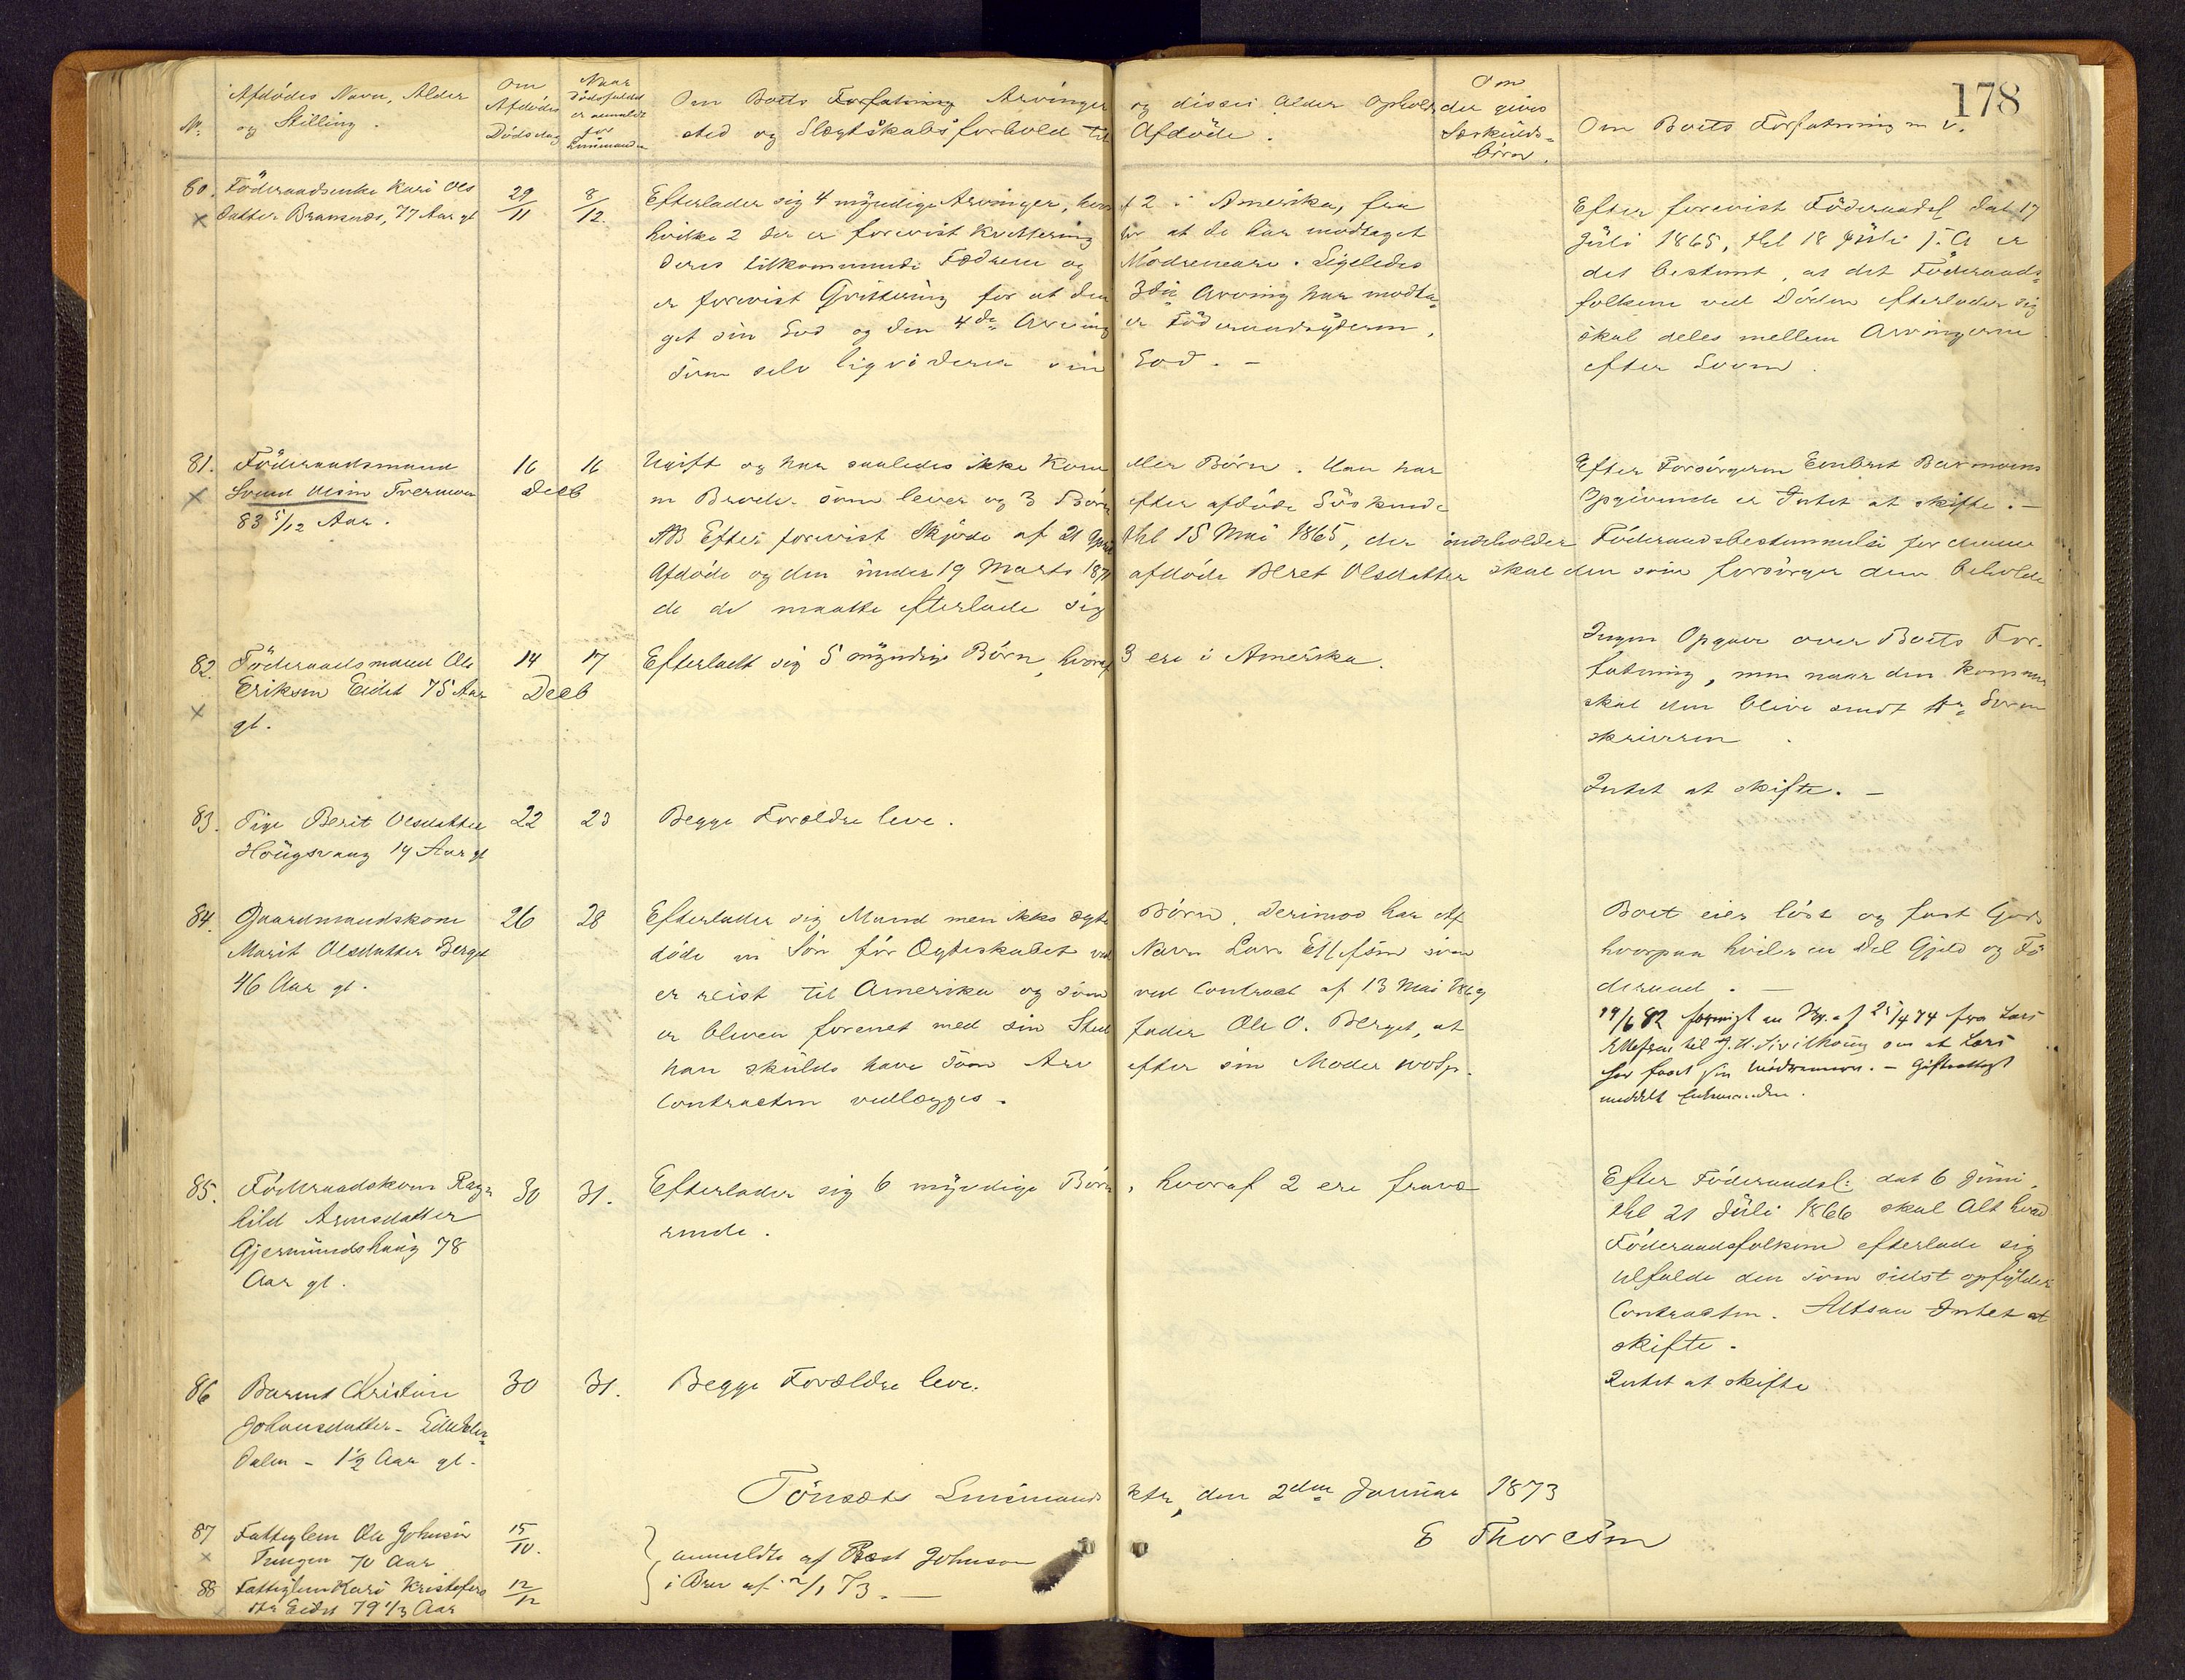 178
No.
Afdødes Navn, Alder
og Stilling.
Om
Afdødes
Dødsdag
Naar
Dødsfaldet
er anmeldt
for
Lensmanden
Om Boets Forfatning Arvinger og disses Alder Opholds
sted og Slægtskabsforhold til Afdøde.
Om
der gives
Særkulds-
børn.
Om Boets Forfatning m. v.
80. Föderaadsenke Kari Ols
datter Bransnes, 77 Aar gl
29/11
8/12.
Efterlader sig 4 myndige Arvinger, hvoraf 2 i Amerika, fra
hvilke 2 der er forevist Kvittering for at de har modtaget
deres tilkommende Fædrene og Mödrenearv. Ligeledes
er forevist Qvittering for at den 3die Arving har modta-
get sin Lod og den 4de Arving er Föderaadsyderen,
som selv ligviderer sin Lod. -
Efter forevist Föderaadsc. dat 17
Juli 1865, thl 18 Juli s. A er
det bestemt, at det Föderaads-
folkene ved Döden efterlader sig
skal deles mellem Arvingerne
efter Loven.
81. Föderaadsmand
Svend Olsen Tvermoen
83 5/12 Aar.
16
16
Decb
Ugift og har saaledes ikke Kone eller Börn. Han har
en Broder som lever og 3 Börn efter afdöde Söskende
NB Efter forevist Skjöde af 21 April thl 15 Mai 1865, der indeholder Föderaadsbestemmelse for denne
Afdöde og den under 19 Marts 187 afdöde Beret Olsdatter skal den som forsörger dem beholde
de de maatte efterlade sig
Efter Forsörgeren Embret Bersvens
Opgivende er Intet at skifte. -
82. Föderaadsmand Ole
Eriksen Eidet 75 Aar
gl.
14
17
Decb
Efterladt sig 5 myndige Börn, hvoraf 3 ere i Amerika.
Ingen Opgave over Boets For-
fatning, men naar den kommer
skal den blive sendt Hr. Soren
skriveren.
83. Pige Berit Olsdatter
Hougsvang 14 Aar gl
22
23
Begge Forældre leve.
Intet at skifte. -
84. Gaardmandskone
Marit Olsdatter Berget
46 Aar gl.
26
28
Efterlader sig Mand men ikke ægte Börn, derimod har Af
döde en Sön för Ægteskabet ved Navn Lars Ellefsen som
er reist til Amerika og som ved Contract af 13 Mai 1869
er bleven forenet med sin Sted fader Ole O. Berget, at
han skulde have som Arv efter sin Moder 100 Sp.
Contracten vedlægges.
Boet eier löst og fast Gods
hvorpaa hviler en Del Gjeld og Fö
deraad. -
19/6 82 foreviist en Kv. af 25/4 74 fra Lars
Ellefsen til J. H. Sivilhoug om at Lars
har faaet sin Mödrenearv. - Skifteattest
meddelt Enkemanden.
85. Föderaadskone Rag-
hild Arnesdatter
Gjermundshaug 78
Aar gl.
30
31.
Efterlader sig 6 myndige Börn, hvoraf 2 ere fravæ
rende.
Efter Föderaadsc. dat 6 Juni,
thl 21 Juli 1866 skal Alt hvad
Föderaadsfolkene efterlade sig
tilfalde den som sidst opfylder
Contracten. Altsaa Intet at
skifte.
86 Barnet Kristine
Johansdatter -
dalen - 1 1/2 Aar gl.
30
31.
Begge Forældre leve.
Intet at skifte
Tönsets Lensmandsktr, den 2den Januar 1873
E Thoresen
87 Fattiglem Ole Johnsen
Tangen 70 Aar
15/10.
88 Fattiglem Kari Kristofers
dtr Eidet 79 1/3 Aar
12/12
anmeldte af Præst Johnson
i Brev af 2/1 73. -